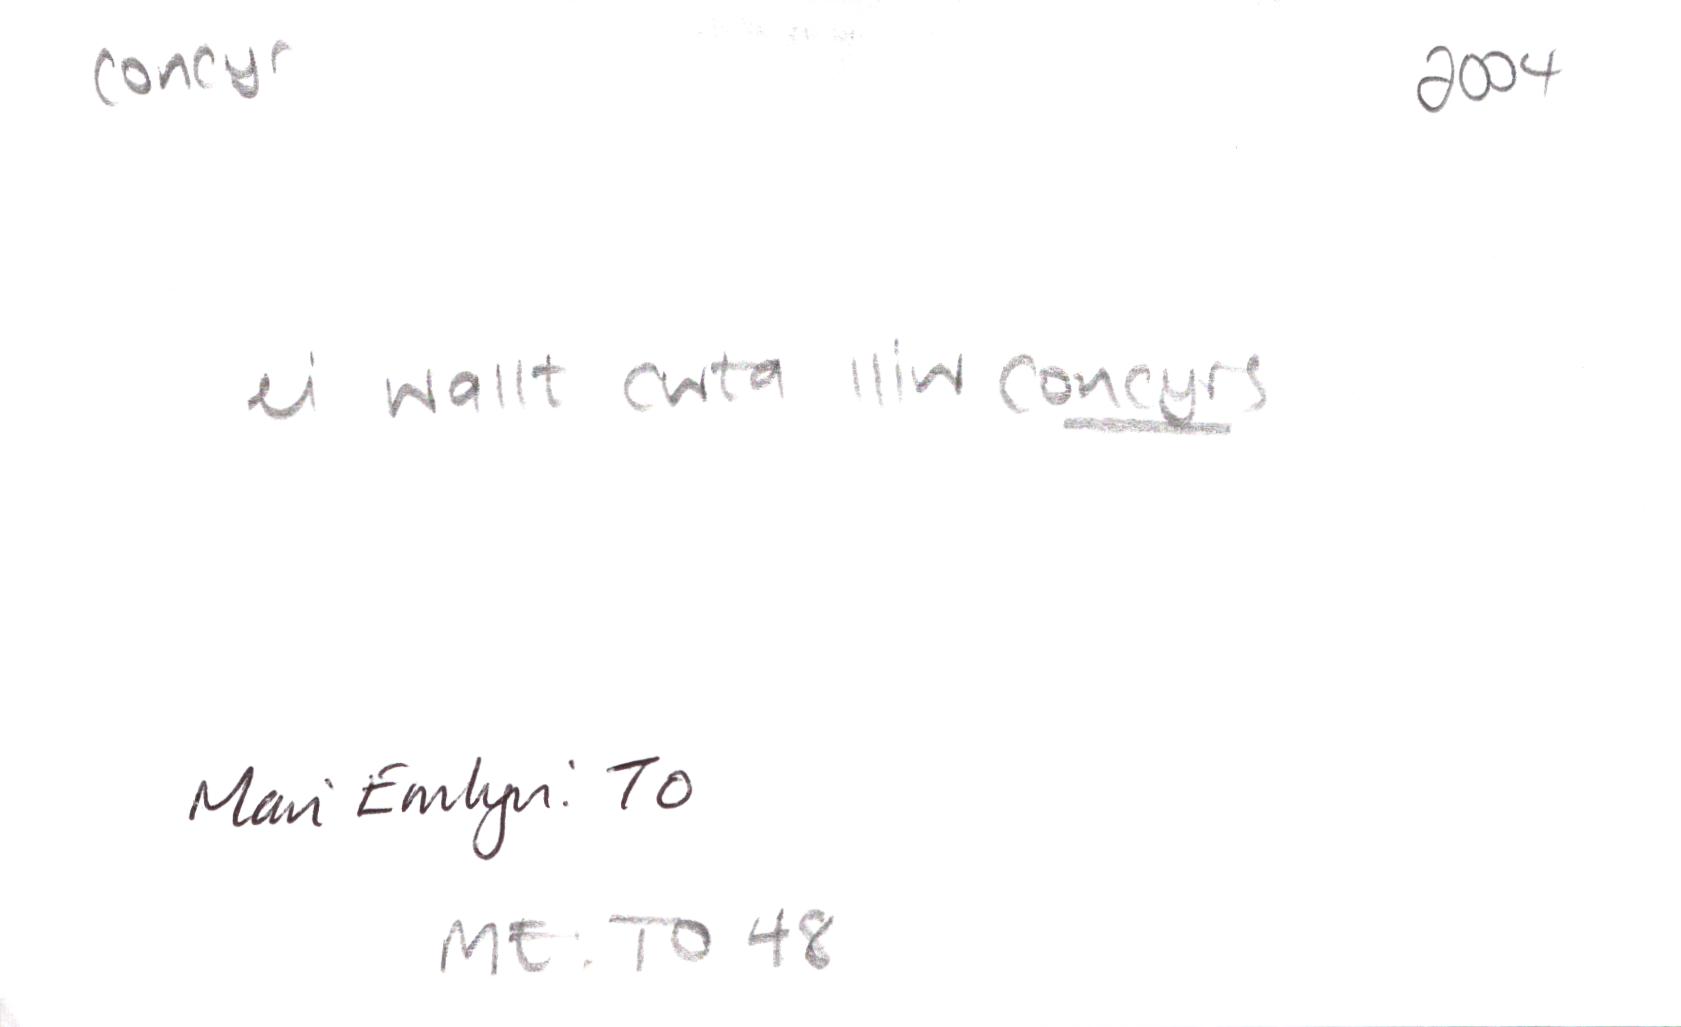 concyr 2004
ei wallt cwta lliw concyrs
Mari Emlyn: TO
ME: TO 48